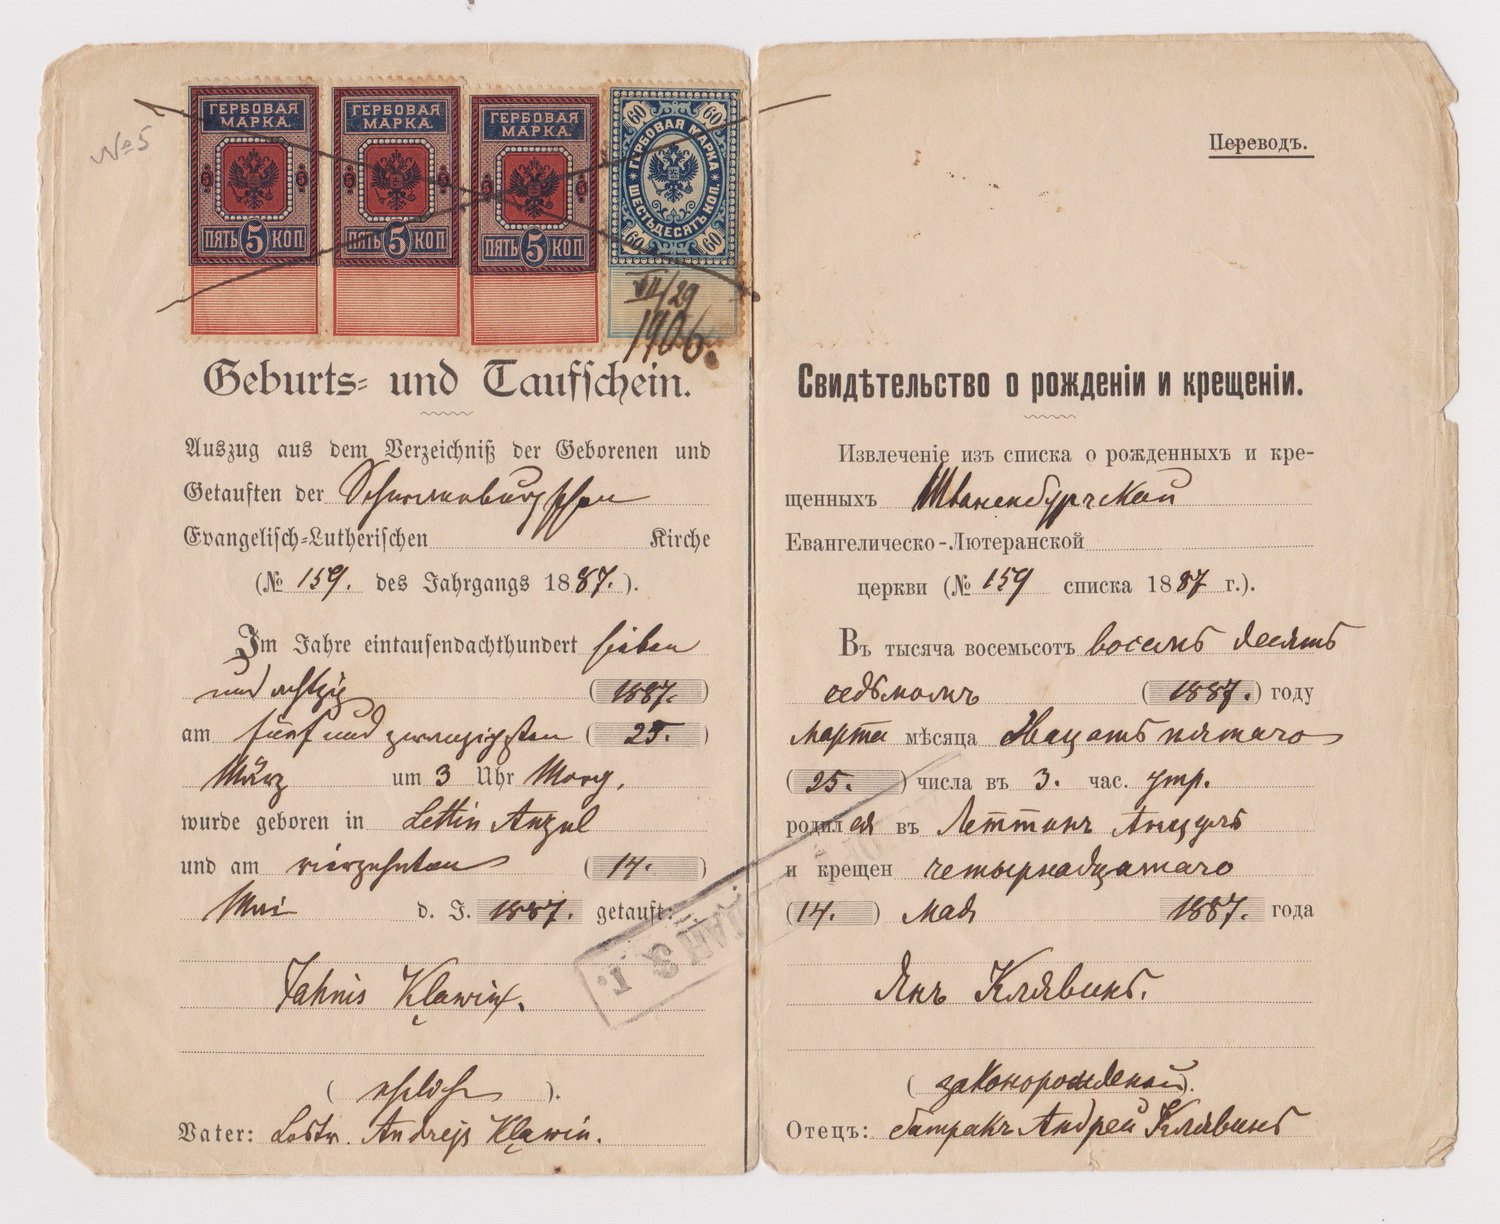 №5
ГЕРБОВАЯ МАРКА.
5 5
ПЯТЬ 5 КОП
ГЕРБОВАЯ МАРКА.
5 5
ПЯТЬ 5 КОП
ГЕРБОВАЯ МАРКА.
5 5
ПЯТЬ 5 КОП
60 60
ГЕРБОВАЯ МАРКА
ШЕСТЬДЕСЯТЪ КОП.
60 60
VII/29
1906.
Geburts- und Taufschein.
Auszug aus dem Verzeichniß der Geborenen und
Getauften der Schwanenburgschen
Evangelisch-Lutherischen Kirche
(№ 159. des Jahrgangs 1887.).
Im Jahre eintausendachthundert sieben
und achtzig (1887.)
am fünf und zwanzigsten (25.)
März um 3 Uhr Morg.
wurde geboren in Lettin Anzul
und am vierzehnten (14.)
Mai d. J. 1887. getauft:
Jahnis Kļawiņ.
(ehelich).
Vater: Andrejs Kļawin.
Переводъ.
Свидѣтельство о рожденіи и крещеніи.
Извлеченіе изъ списка о рожденныхъ и кре-
щенныхъ Шваненбургской
Евангелическо-Лютеранской
церкви (№ 159 списка 1887 г.).
Въ тысяча восемьсотъ восемь десять
седьмомъ (1887.) году
Марта мѣсяца двацать пятаго
(25.) числа въ 3. час. утр.
родился въ Леттинъ Анцулъ
и крещен четырнадцатаго
(14.) Мая 1887. года
Янъ Клявинь.
(законорожденой).
Отецъ: батракъ Андрей Клявинь